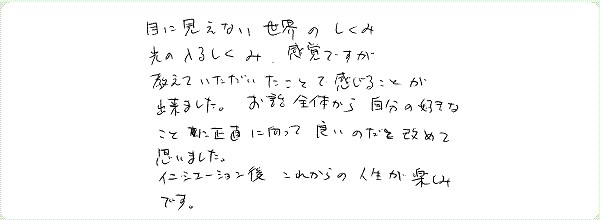 目に見えない世界のしくみ
光の入るしくみ、感覚ですが
教えていただいたことで感じることが
出来ました。お話全体から自分の好きな
こと に正直に向って良いのだを改めて
思いました。
イニシエーション後 これからの人生が楽しみ
です。